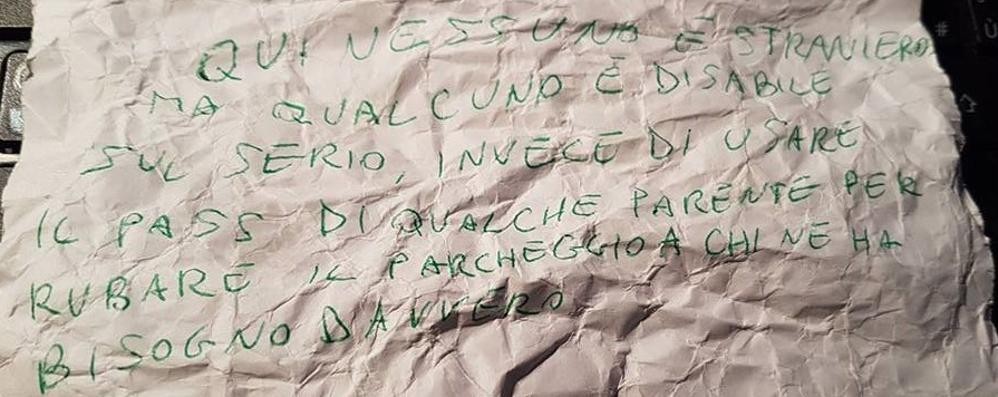 QUI NESSUNO È STRANIERO
MA QUALCUNO È DISABILE
SUL SERIO, INVECE DI USARE
IL PASS DI QUALCHE PARENTE PER
RUBARE IL PARCHEGGIO A CHI NE HA
BISOGNO DAVVERO